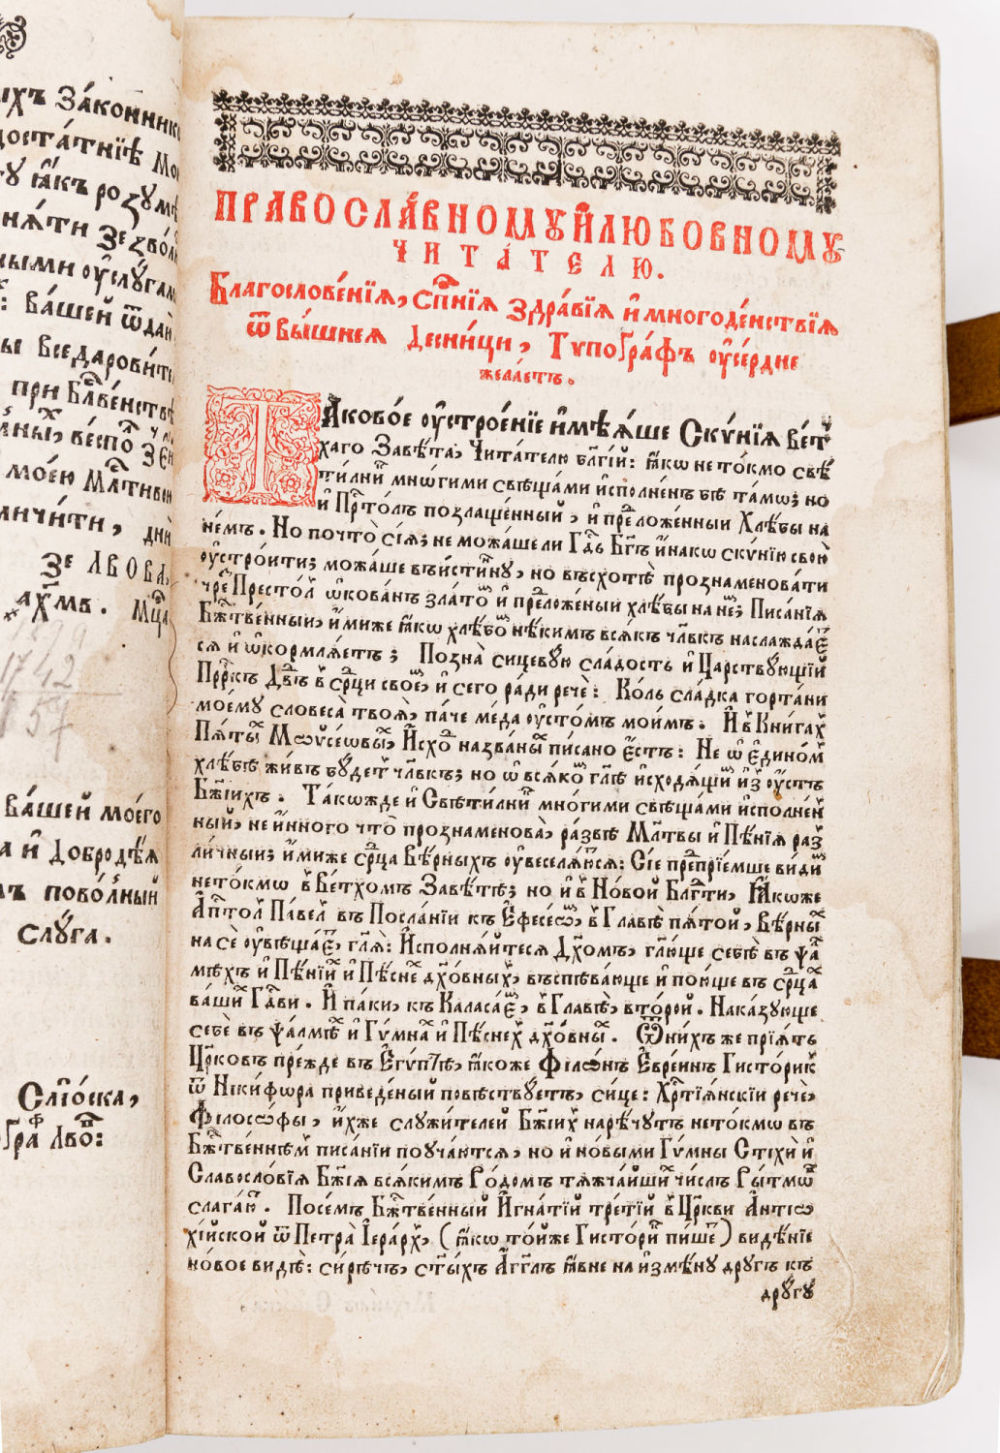 ыхъ За́конник
доста́тнїѣ Мо
у ꙗ҆́къ розꙋмѣ
ня́ти зезво́л
ными оу҆слꙋ́гам
ва́шей ѿдай
вседарови́т
при Бл҃ве́нствѣ
мое́ю
личи́ти, днѝ
зе лвова,
ахм҃в. Мц҃а
1742
57
ва́шей моего̀
а и҆ Добродѣ́я
пово́лный
слꙋга̀.
Слїо́ска,
ПРАВОСЛА́ВНОМꙊИ҆ЛЮБОВНОМꙊ
ЧИТА́ТЕЛЮ.
Благослове́нїѧ, сп҃нїѧ здра́вїѧ и҆ многоде́нствїѧ
ѿ вы́шнеѧ десни́ци, Типогра́фъ оу҆се́рдне
жела́етъ.
Таково́е оу҆строе́нїе и҆мѣѧ́ше Скꙋ́нїѧ ве́т
хаго Завѣ́та, Чита́телю бл҃гі́й: ꙗ҆́кѡ не то́кмо свѣ
ти́лни мно́гими свѣща́ми и҆спо́лненъ бѣ та́мѡ; но
и҆ Прⷭ҇то́лъ позлаще́нный, и҆ предложе́нныи Хлѣ́бы на
не́мъ. Но почто̀ сїѧ̀; не можа́ше ли Гд҇ь Бг҃ъ и҆́накѡ скꙋ́нїю свою̀
оу҆стро́ити; можа́ше вьи́стиннꙋ, но въсхотѣ̀ прознаменова́ти
чрез̾ Престо́л ѡ҆ко́ванъ зла́том и҆ предложе́ныи хлѣ́бы на нем; Писа́нїѧ
Бжⷭ҇тве́нныи, и҆́миже ꙗ҆́кѡ хлѣ́бом нѣ́кимъ всѧ́къ чл҃вкъ наслажда́ет
сѧ и҆ ѡ҆кормлѧ́етъ; Позна̀ сицевꙋ́ю сла́дость и҆ Ца́рствꙋющїй
Прⷪ҇ркъ Дв҃дъ в̾ срⷣци свое́м, и҆ сего ра́ди речѐ: Ко́ль сла́дка горта́ни
моемꙋ словеса̀ твоѧ̀, па́че ме́да оу҆сто́мъ мои́мъ. И҆ в̾ Кни́гах
Пѧ́ты Мѡѷсе́ѡвы, И҆схо́д назва́ны пи́сано е҆́сть: Не ѡ҆ е҆ди́ном
хлѣ́бѣ жи́въ бꙋ́детъ чл҃вкъ; но ѡ҆ всѧ́ком гл҃ѣ и҆сходѧ́щим и҆з̾ оу҆́стъ
Бж҃їихъ. Та́кѡжде и҆ Свѣти́лни мно́гими свѣща́ми и҆спо́лнен
ный, не и҆́нного что̀ прознаменова̀, ра́звѣ Мл҃твы и҆ Пѣ́нїѧ раз
ли́чныи; и҆́миже срⷣца Вѣ́рныхъ оу҆веселѧ́ютсѧ: Сїе препрїе́мше ви́дим
нето́кмѡ в̾ Ве́тхомъ Завѣ́тѣ; но и҆ в̾ Но́вой Блг҃ти, Ꙗ҆́коже
А҆пⷭ҇тол Па́вел въ Посла́нїи къ Е҆фесе́ѡм, в̾ Главѣ̀ пѧ́той, Вѣ́рны
на сѐ оу҆вѣща́ет, гл҃ѧ: И҆сполнѧ́йтесѧ Дх҃омъ, гл҃юще себѣ̀ въ ѱал
мѣхъ и҆ Пѣ́нїих и҆ Пѣ́снех дх҃о́вных, въспѣва́юще и҆ пою́ще въ срⷣца
ва́ши Гд҇ви. И҆ па́ки, къ Каласа́ем, в̾ Главѣ̀, вто́рой. Нака́зꙋюще
себѐ въ ѱалмѣх и҆ Гѵ́мнах и҆ Пѣ́снех дх҃о́вны. Ѿни́хъ же прїѧ́тъ
Цр҃ковъ пре́жде въ Е҆гѵ́птѣ, ꙗ҆́коже Філѡ́нъ Е҆вре́инъ Гисто́рик
ѿ Ники́фора приведе́ный повѣствꙋ́етъ, си́це: Хрⷭ҇тїѧ́нскїи речѐ,
Філосо́фы, и҆́хже слꙋжи́телей Бж҃їих нарѣчꙋ́тъ нето́кмѡ въ
Бжⷭ҇тве́ннѣм писа́нїи поꙋча́ютсѧ, но и҆ но́выми Гѵ́мны Стїхѝ и҆
Славосло́вїѧ Бж҃їѧ всѧ́кимъ Ро́домъ тѧжча́йши чи́слъ Ры́тмѡв
слага́ют. Посе́мъ Бжⷭ҇тве́нный И҆гна́тїй тре́тїй в̾ Цр҃кви А҆нтїѡ
хі́йской ѿ Петра̀ І҆ера́рх, (ꙗ҆́кѡ то́йже Гисто́рик пи́шет) видѣ́нїе
но́вое ви́дѣ: си́рѣчъ, ст҃ы́хъ А҆́гг҃лъ ꙗ҆́вне на и҆змѣ́нꙋ дрꙋ́гъ къ
дрꙋ́гꙋ